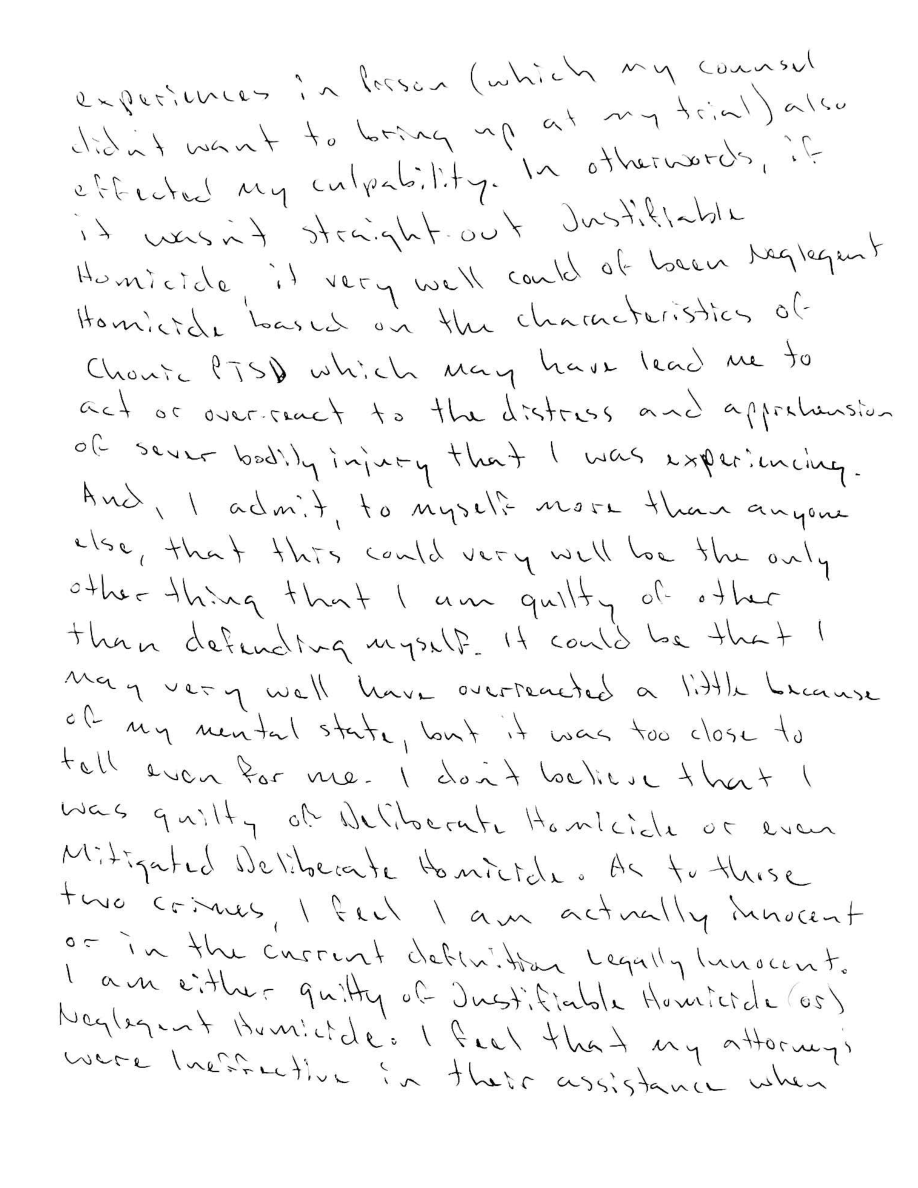 experiences in Person (which my counsel
didn't want to bring up at my trial) also
effected my culpability. In otherwords, if
it wasn't straight-out Justifiable
Homicide, it very well could of been Neglegent
Homicide based on the characteristics of
Chonic PTSD which may have lead me to
act or over-react to the distress and apprehension
of sever bodily injury that I was experiencing.
And, I admit, to myself more than anyone
else, that this could very well be the only
other thing that I am guilty of other
than defending myself. It could be that I
may very well have overreacted a little because
of my mental state, but it was too close to
tell even for me. I don't believe that I
was guilty of Deliberate Homicide or even
Mitigated Deliberate Homicide. As to those
two crimes, I feel I am actually innocent
or in the current definition Legally Innocent.
I am either guilty of Justifiable Homicide (or)
Neglegent Homicide. I feel that my attorney's
were Ineffective in their assistance when